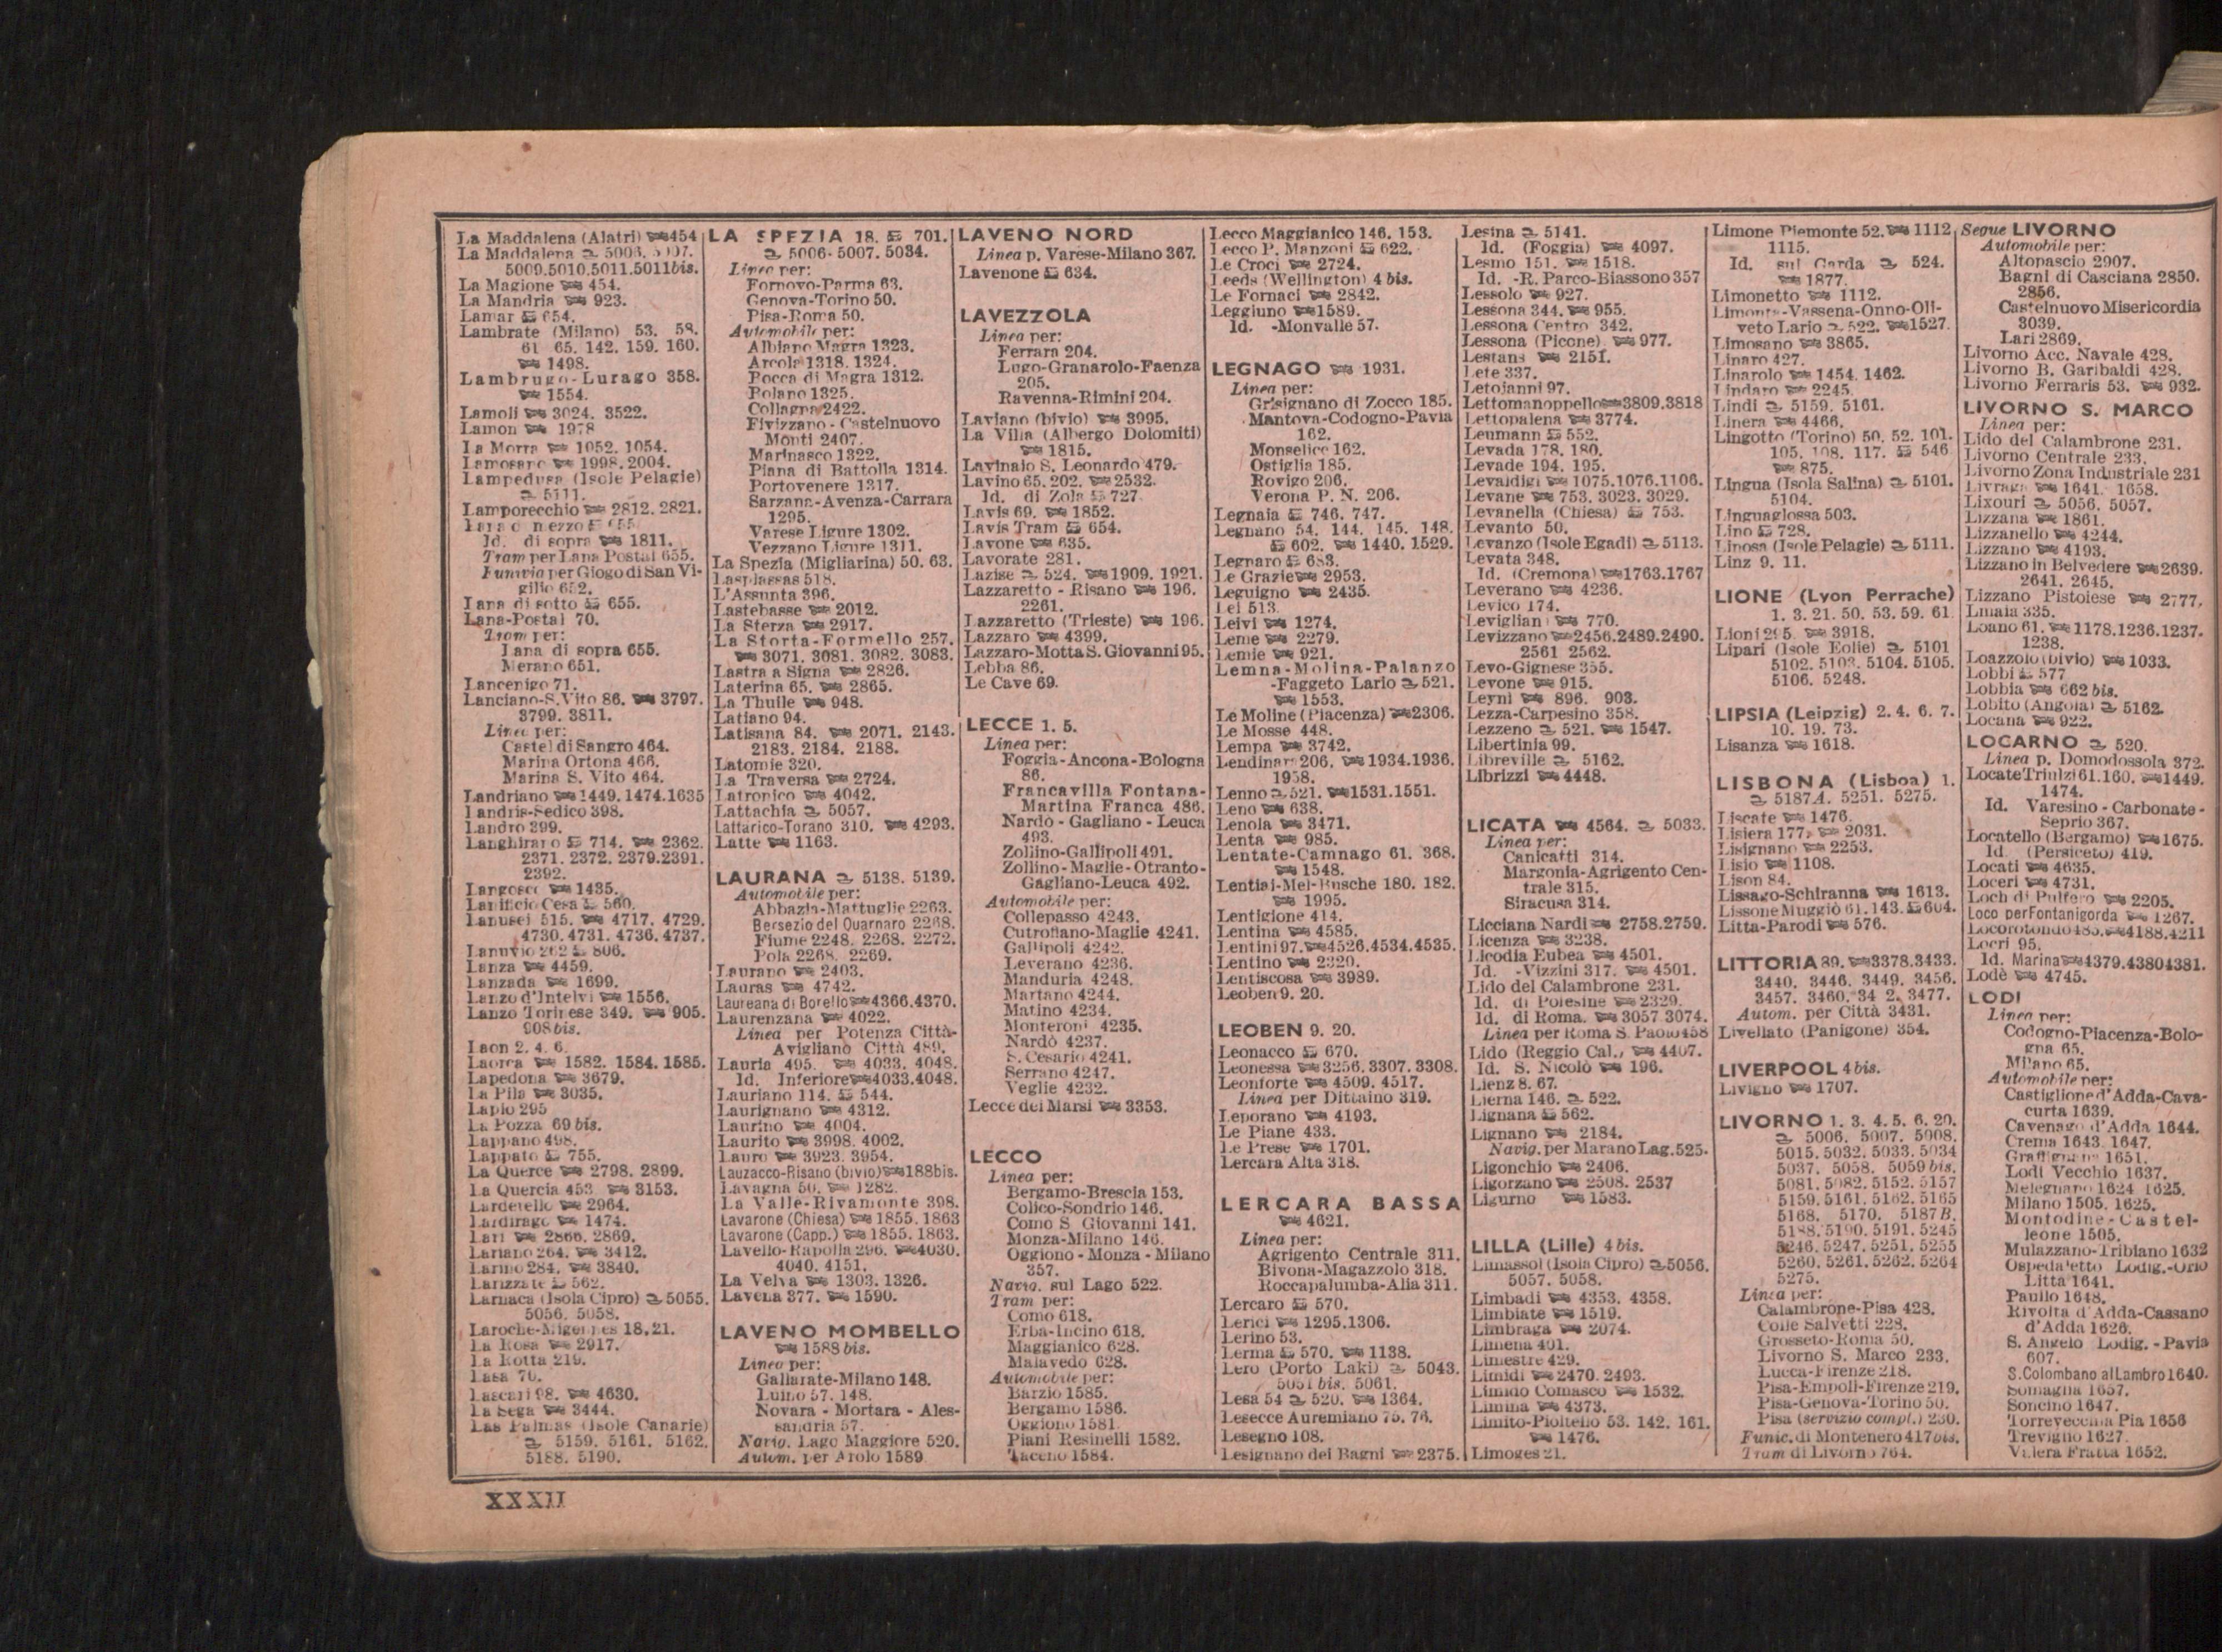 La Maddalena (Alatri) 454
La Maddalena 5006. 5007.
5009.5010.5011.5011bis.
La Magione 454.
La Mandria 923.
Lamar 654.
Lambrate (Milano) 53. 58.
61 65. 142. 159. 160.
1498.
Lambrugo-Lurago 358.
1554.
Lamoli 3024. 3522.
Lamon 1978
La Morra 1052. 1054.
Lamosano 1998. 2004.
Lampedusa (Isole Pelagie)
5111.
Lamporecchio 2812. 2821.
Id. di sopra 1811.
Tram per Lana Postal 655.
Funivia per Giogo di San Vi-
gilio 652.
Lana di sotto 655.
Lana-Postal 70.
Tram per:
Lana di sopra 655.
Merano 651.
Lancenigo 71.
Lanciano-S. Vito 86. 3797.
3799. 3811.
Linea per:
Castel di Sangro 464.
Marina Ortona 466.
Marina S. Vito 464.
Landriano 1449. 1474. 1635
Landris-Sedico 398.
Landro 399.
Langhirano 714. 2362.
2371. 2372. 2379. 2391.
2392.
Langosco 1435.
Lanificio Cesa 560.
Lanusei 515. 4717. 4729.
4730. 4731. 4736. 4737.
Lanuvio 262 806.
Lanza 4459.
Lanzada 1699.
Lanzo d'Intelvi 1556.
Lanzo Torinese 349. 905.
908bis.
Laon 2. 4. 6.
Laorca 1582. 1584. 1585.
Lapedona 3679.
La Pila 3035.
Lapio 295
La Pozza 69 bis.
Lappano 498.
Lappato 755.
La Querce 2798. 2899.
La Quercia 453 3153.
Larderello 2964.
Lardirago 1474.
Lari 2866. 2869.
Lariano 264. 3412.
Larino 284. 3840.
Larizzate 562.
Larnaca (Isola Cipro) 5055.
5056. 5058.
Laroche-Migennes 18. 21.
La Rosa 2917.
La Rotta 219.
Lasa 70.
Lascari 98. 4630.
La Sega 3444.
Las Palmas (Isole Canarie)
5159. 5161. 5162.
5188. 5190.
LA SPEZIA 18. 701.
5006. 5007. 5034.
Linea per:
Fornovo-Parma 63.
Genova-Torino 50.
Pisa-Roma 50.
Automobile per:
Albiano Magra 1323.
Arcola 1318. 1324.
Bocca di Magra 1312.
Bolano 1325.
Collagna 2422.
Fivizzano - Castelnuovo
Monti 2407.
Marinasco 1322.
Piana di Battolla 1314.
Portovenere 1317.
Sarzana-Avenza-Carrara
1295.
Varese Ligure 1302.
Vezzano Ligure 1311.
La Spezia (Migliarina) 50. 63.
Lasplassas 518.
L'Assunta 396.
Lastebasse 2012.
La Sterza 2917.
La Storta-Formello 257.
3071. 3081. 3082. 3083.
Lastra a Signa 2826.
Laterina 65. 2865.
La Thuile 948.
Latiano 94.
Latisana 84. 2071. 2143.
2183. 2184. 2188.
Latomie 320.
La Traversa 2724.
Latronico 4042.
Lattachia 5057.
Lattarico-Torano 310. 4293.
Latte 1163.
LAURANA 5138. 5139.
Automobile per:
Abbazia-Mattuglie 2263.
Bersezio del Quarnaro 2268.
Fiume 2248. 2268. 2272.
Pola 2268. 2269.
Laurano 2403.
Lauras 4742.
Laureana di Borello 4366.4370.
Laurenzana 4022.
Linea per Potenza Città-
Avigliano Città 489.
Lauria 495. 4033. 4048.
Id. Inferiore 4033.4048.
Lauriano 114. 544.
Laurignano 4312.
Laurino 4004.
Laurito 3998. 4002.
Lauro 3923. 3954.
Lauzacco-Risano (bivio) 188bis.
Lavagna 50. 1282.
La Valle-Rivamonte 398.
Lavarone (Chiesa) 1855. 1863
Lavarone (Capp.) 1855. 1863.
Lavello-Rapolla 296. 4030.
4040. 4151.
La Velva 1303. 1326.
Lavena 377. 1590.
LAVENO MOMBELLO
1588 bis.
Linea per:
Gallarate-Milano 148.
Luino 57. 148.
Novara - Mortara - Ales-
sandria 57.
Navig. Lago Maggiore 520.
Autom. per Arolo 1589
LAVENO NORD
Linea p. Varese-Milano 367.
Lavenone 634.
LAVEZZOLA
Linea per:
Ferrara 204.
Lugo-Granarolo-Faenza
205.
Ravenna-Rimini 204.
Laviano (bivio) 3995.
La Villa (Albergo Dolomiti)
1815.
Lavinaio S. Leonardo 479.
Lavino 65. 202. 2532.
Id. di Zola 727.
Lavis 69. 1852.
Lavis Tram 654.
Lavone 635.
Lavorate 281.
Lazise 524. 1909. 1921.
Lazzaretto - Risano 196.
2261.
Lazzaretto (Trieste) 196.
Lazzaro 4399.
Lazzaro-Motta S. Giovanni 95.
Lebba 86.
Le Cave 69.
LECCE 1. 5.
Linea per:
Foggia-Ancona-Bologna
86.
Francavilla Fontana-
Martina Franca 486.
Nardò - Gagliano - Leuca
493.
Zollino-Gallipoli 491.
Zollino-Maglie-Otranto-
Gagliano-Leuca 492.
Automobile per:
Collepasso 4243.
Cutrofiano-Maglie 4241.
Gallipoli 4242.
Leverano 4236.
Manduria 4248.
Martano 4244.
Matino 4234.
Monteroni 4235.
Nardò 4237.
S. Cesario 4241.
Serrano 4247.
Veglie 4232.
Lecce dei Marsi 3353.
LECCO
Linea per:
Bergamo-Brescia 153.
Colico-Sondrio 146.
Como S Giovanni 141.
Monza-Milano 146.
Oggiono - Monza - Milano
357.
Navig. sul Lago 522.
Tram per:
Como 618.
Erba-Incino 618.
Maggianico 628.
Malavedo 628.
Automobile per:
Barzio 1585.
Bergamo 1586.
Oggiono 1581.
Piani Resinelli 1582.
Taceno 1584.
Lecco Maggianico 146. 153.
Lecco P. Manzoni 622.
Le Croci 2724.
Leeds (Wellington) 4 bis.
Le Fornaci 2842.
Leggiuno 1589.
Id. -Monvalle 57.
LEGNAGO 1931.
Linea per:
Grisignano di Zocco 185.
Mantova-Codogno-Pavia
162.
Monselice 162.
Ostiglia 185.
Rovigo 206.
Verona P. N. 206.
Legnaia 746. 747.
Legnano 54. 144. 145. 148.
602. 1440. 1529.
Legnaro 683.
Le Grazie 2953.
Leguigno 2435.
Lei 513.
Leivi 1274.
Leme 2279.
Lemie 921.
Lemna-Molina-Palanzo
-Faggeto Lario 521.
1553.
Le Moline (Piacenza) 2306.
Le Mosse 448.
Lempa 3742.
Lendinara 206. 1934.1936.
1958.
Lenno 521. 1531.1551.
Leno 638.
Lenola 3471.
Lenta 985.
Lentate-Camnago 61. 368.
1548.
Lentiai-Mel-Busche 180. 182.
1995.
Lentigione 414.
Lentina 4585.
Lentini 97. 4526.4534.4535.
Lentino 2320.
Lentiscosa 3989.
Leoben 9. 20.
LEOBEN 9. 20.
Leonacco 670.
Leonessa 3256. 3307. 3308.
Leonforte 4509. 4517.
Linea per Dittaino 319.
Leporano 4193.
Le Piane 433.
Le Prese 1701.
Lercara Alta 318.
LERCARA BASSA
4621.
Linea per:
Agrigento Centrale 311.
Bivona-Magazzolo 318.
Roccapalumba-Alia 311.
Lercaro 570.
Lerici 1295.1306.
Lerino 53.
Lerma 570. 1138.
Lero (Porto Laki) 5043.
5051 bis. 5061.
Lesa 54 520. 1364.
Lesecce Auremiano 75. 76.
Lesegno 108.
Lesignano dei Bagni 2375.
Lesina 5141.
Id. (Foggia) 4097.
Lesmo 151. 1518.
Id. -R. Parco-Biassono 357
Lessolo 927.
Lessona 344. 955.
Lessona Centro 342.
Lessona (Picone) 977.
Lestans 2151.
Lete 337.
Letojanni 97.
Lettomanoppello 3809.3818
Lettopalena 3774.
Leumann 552.
Levada 178. 180.
Levade 194. 195.
Levaldigi 1075.1076.1106.
Levane 753. 3023. 3029.
Levanella (Chiesa) 753.
Levanto 50.
Levanzo (Isole Egadi) 5113.
Levata 348.
Id. (Cremona) 1763.1767
Leverano 4236.
Levico 174.
Leviglian 770.
Levizzano 2456.2489.2490.
2561 2562.
Levo-Gignese 355.
Levone 915.
Leyni 896. 903.
Lezza-Carpesino 358.
Lezzeno 521. 1547.
Libertinia 99.
Libreville 5162.
Librizzi 4448.
LICATA 4564. 5033.
Linea per:
Canicattì 314.
Margonia-Agrigento Cen-
trale 315.
Siracusa 314.
Licciana Nardi 2758.2759.
Licenza 3238.
Licodia Eubea 4501.
Id. -Vizzini 317. 4501.
Lido del Calambrone 231.
Id. di Polesine 2329.
Id. di Roma. 3057 3074.
Linea per Roma S. Paolo 458
Lido (Reggio Cal.) 4407.
Id. S. Nicolò 196.
Lienz 8. 67.
Lierna 146. 522.
Lignana 562.
Lignano 2184.
Navig. per Marano Lag. 525.
Ligonchio 2406.
Ligorzano 2508. 2537
Ligurno 1583.
LILLA (Lille) 4 bis.
Limassol (Isola Cipro) 5056.
5057. 5058.
Limbadi 4353. 4358.
Limbiate 1519.
Limbraga 2074.
Limena 401.
Limestre 429.
Limidi 2470. 2493.
Limido Comasco 1532.
Limina 4373.
Limito-Pioltello 53. 142. 161.
1476.
Limoges 21.
Limone Piemonte 52. 1112
1115.
Id. sul Garda 524.
1877.
Limonetto 1112.
Limonta-Vassena-Onno-Oli-
veto Lario 522. 1527.
Limosano 3865.
Linaro 427.
Linarolo 1454. 1462.
Lindaro 2245.
Lindi 5159. 5161.
Linera 4466.
Lingotto (Torino) 50. 52. 101.
105. 108. 117. 546
875.
Lingua (Isola Salina) 5101.
5104.
Linguaglossa 503.
Lino 728.
Linosa (Isole Pelagie) 5111.
Linz 9. 11.
LIONE (Lyon Perrache)
1. 3. 21. 50. 53. 59. 61
Lioni 295. 3918.
Lipari (Isole Eolie) 5101
5102. 5103. 5104. 5105.
5106. 5248.
LIPSIA (Leipzig) 2. 4. 6. 7.
10. 19. 73.
Lisanza 1618.
LISBONA (Lisboa) 1.
5187A. 5251. 5275.
Liscate 1476.
Lisiera 177. 2031.
Lisignano 2253.
Lisio 1108.
Lison 84.
Lissago-Schiranna 1613.
Lissone Muggiò 61. 143. 604.
Litta-Parodi 576.
LITTORIA 89. 3378.3433.
3440. 3446. 3449. 3456.
3457. 3460. 3477.
Autom. per Città 3431.
Livellato (Panigone) 354.
LIVERPOOL 4 bis.
Livigno 1707.
LIVORNO 1. 3. 4. 5. 6. 20.
5006. 5007. 5008.
5015. 5032. 5033. 5034
5037. 5058. 5059 bis.
5081. 5082. 5152. 5157
5159. 5161. 5162. 5165
5168. 5170. 5187B.
5188. 5190. 5191. 5245
5246. 5247. 5251. 5255
5260. 5261. 5262. 5264
5275.
Linea per:
Calambrone-Pisa 428.
Colle Salvetti 228.
Grosseto-Roma 50.
Livorno S. Marco 233.
Lucca-Firenze 218.
Pisa-Empoli-Firenze 219.
Pisa-Genova-Torino 50.
Pisa (servizio compl.) 230.
Funic. di Montenero 417bis.
Tram di Livorno 764.
Segue LIVORNO
Automobile per:
Altopascio 2907.
Bagni di Casciana 2850.
2856.
Castelnuovo Misericordia
3039.
Lari 2869.
Livorno Acc. Navale 428.
Livorno B. Garibaldi 428.
Livorno Ferraris 53. 932.
LIVORNO S. MARCO
Linea per:
Lido del Calambrone 231.
Livorno Centrale 233.
Livorno Zona Industriale 231
Livraga 1641. 1658.
Lixouri 5056. 5057.
Lizzana 1861.
Lizzanello 4244.
Lizzano 4193.
Lizzano in Belvedere 2639.
2641. 2645.
Lizzano Pistoiese 2777.
Lmaia 335.
Loano 61. 1178.1236.1237.
1238.
Loazzolo (bivio) 1033.
Lobbi 577
Lobbia 662 bis.
Lobito (Angola) 5162.
Locana 922.
LOCARNO 520.
Linea p. Domodossola 372.
Locate Triulzi 61.160. 1449.
1474.
Id. Varesino-Carbonate-
Seprio 367.
Locatello (Bergamo) 1675.
Id. (Persiceto) 419.
Locati 4635.
Loceri 4731.
Loch di Pulfero 2205.
Loco per Fontanigorda 1267.
Locorotondo 485. 4188.4211
Locri 95.
Id. Marina 4379.4380 4381.
Lodè 4745.
LODI
Linea per:
Codogno-Piacenza-Bolo-
gna 65.
Milano 65.
Automobile per:
Castiglione d'Adda-Cava-
curta 1639.
Cavenago d'Adda 1644.
Crema 1643. 1647.
Graffignana 1651.
Lodi Vecchio 1637.
Melegnano 1624 1625.
Milano 1505. 1625.
Montodine-Castel-
leone 1505.
Mulazzano-Tribiano 1632
Ospedaletto Lodig.-Orio
Litta 1641.
Paullo 1648.
Rivolta d'Adda-Cassano
d'Adda 1626.
S. Angelo Lodig. - Pavia
607.
S. Colombano al Lambro 1640.
Somaglia 1657.
Soncino 1647.
Torrevecchia Pia 1656
Treviglio 1627.
Valera Fratta 1652.
XXXII